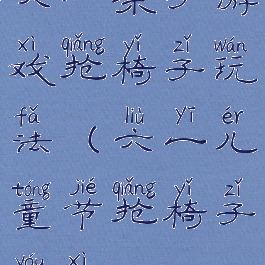 xì qiǎng yǐ zǐ wán
戏抢椅子玩
fǎ liù yī ér
法(六一儿
tóng jié qiǎng yǐ zǐ
童节抢椅子
yóu xì